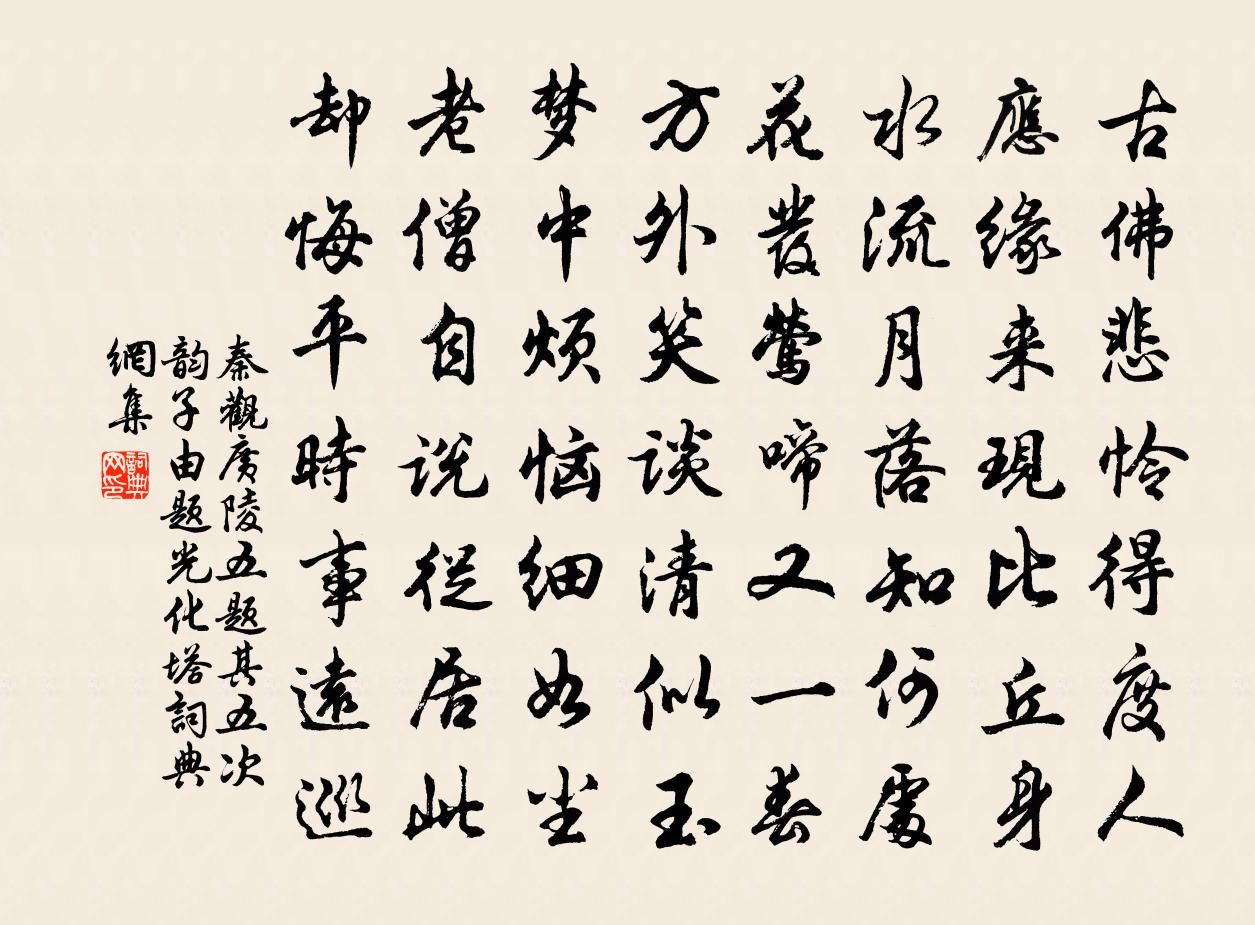 古佛悲怜得度人
應緣来現比丘身
水流月落知何處
花發鶯啼又一春
方外笑談清似玉
梦中烦恼細如尘
老僧自説從居此
却悔平時事遠巡
秦觀廣陵五题其五次
韵子由题光化塔詞典
網集
詞典网印